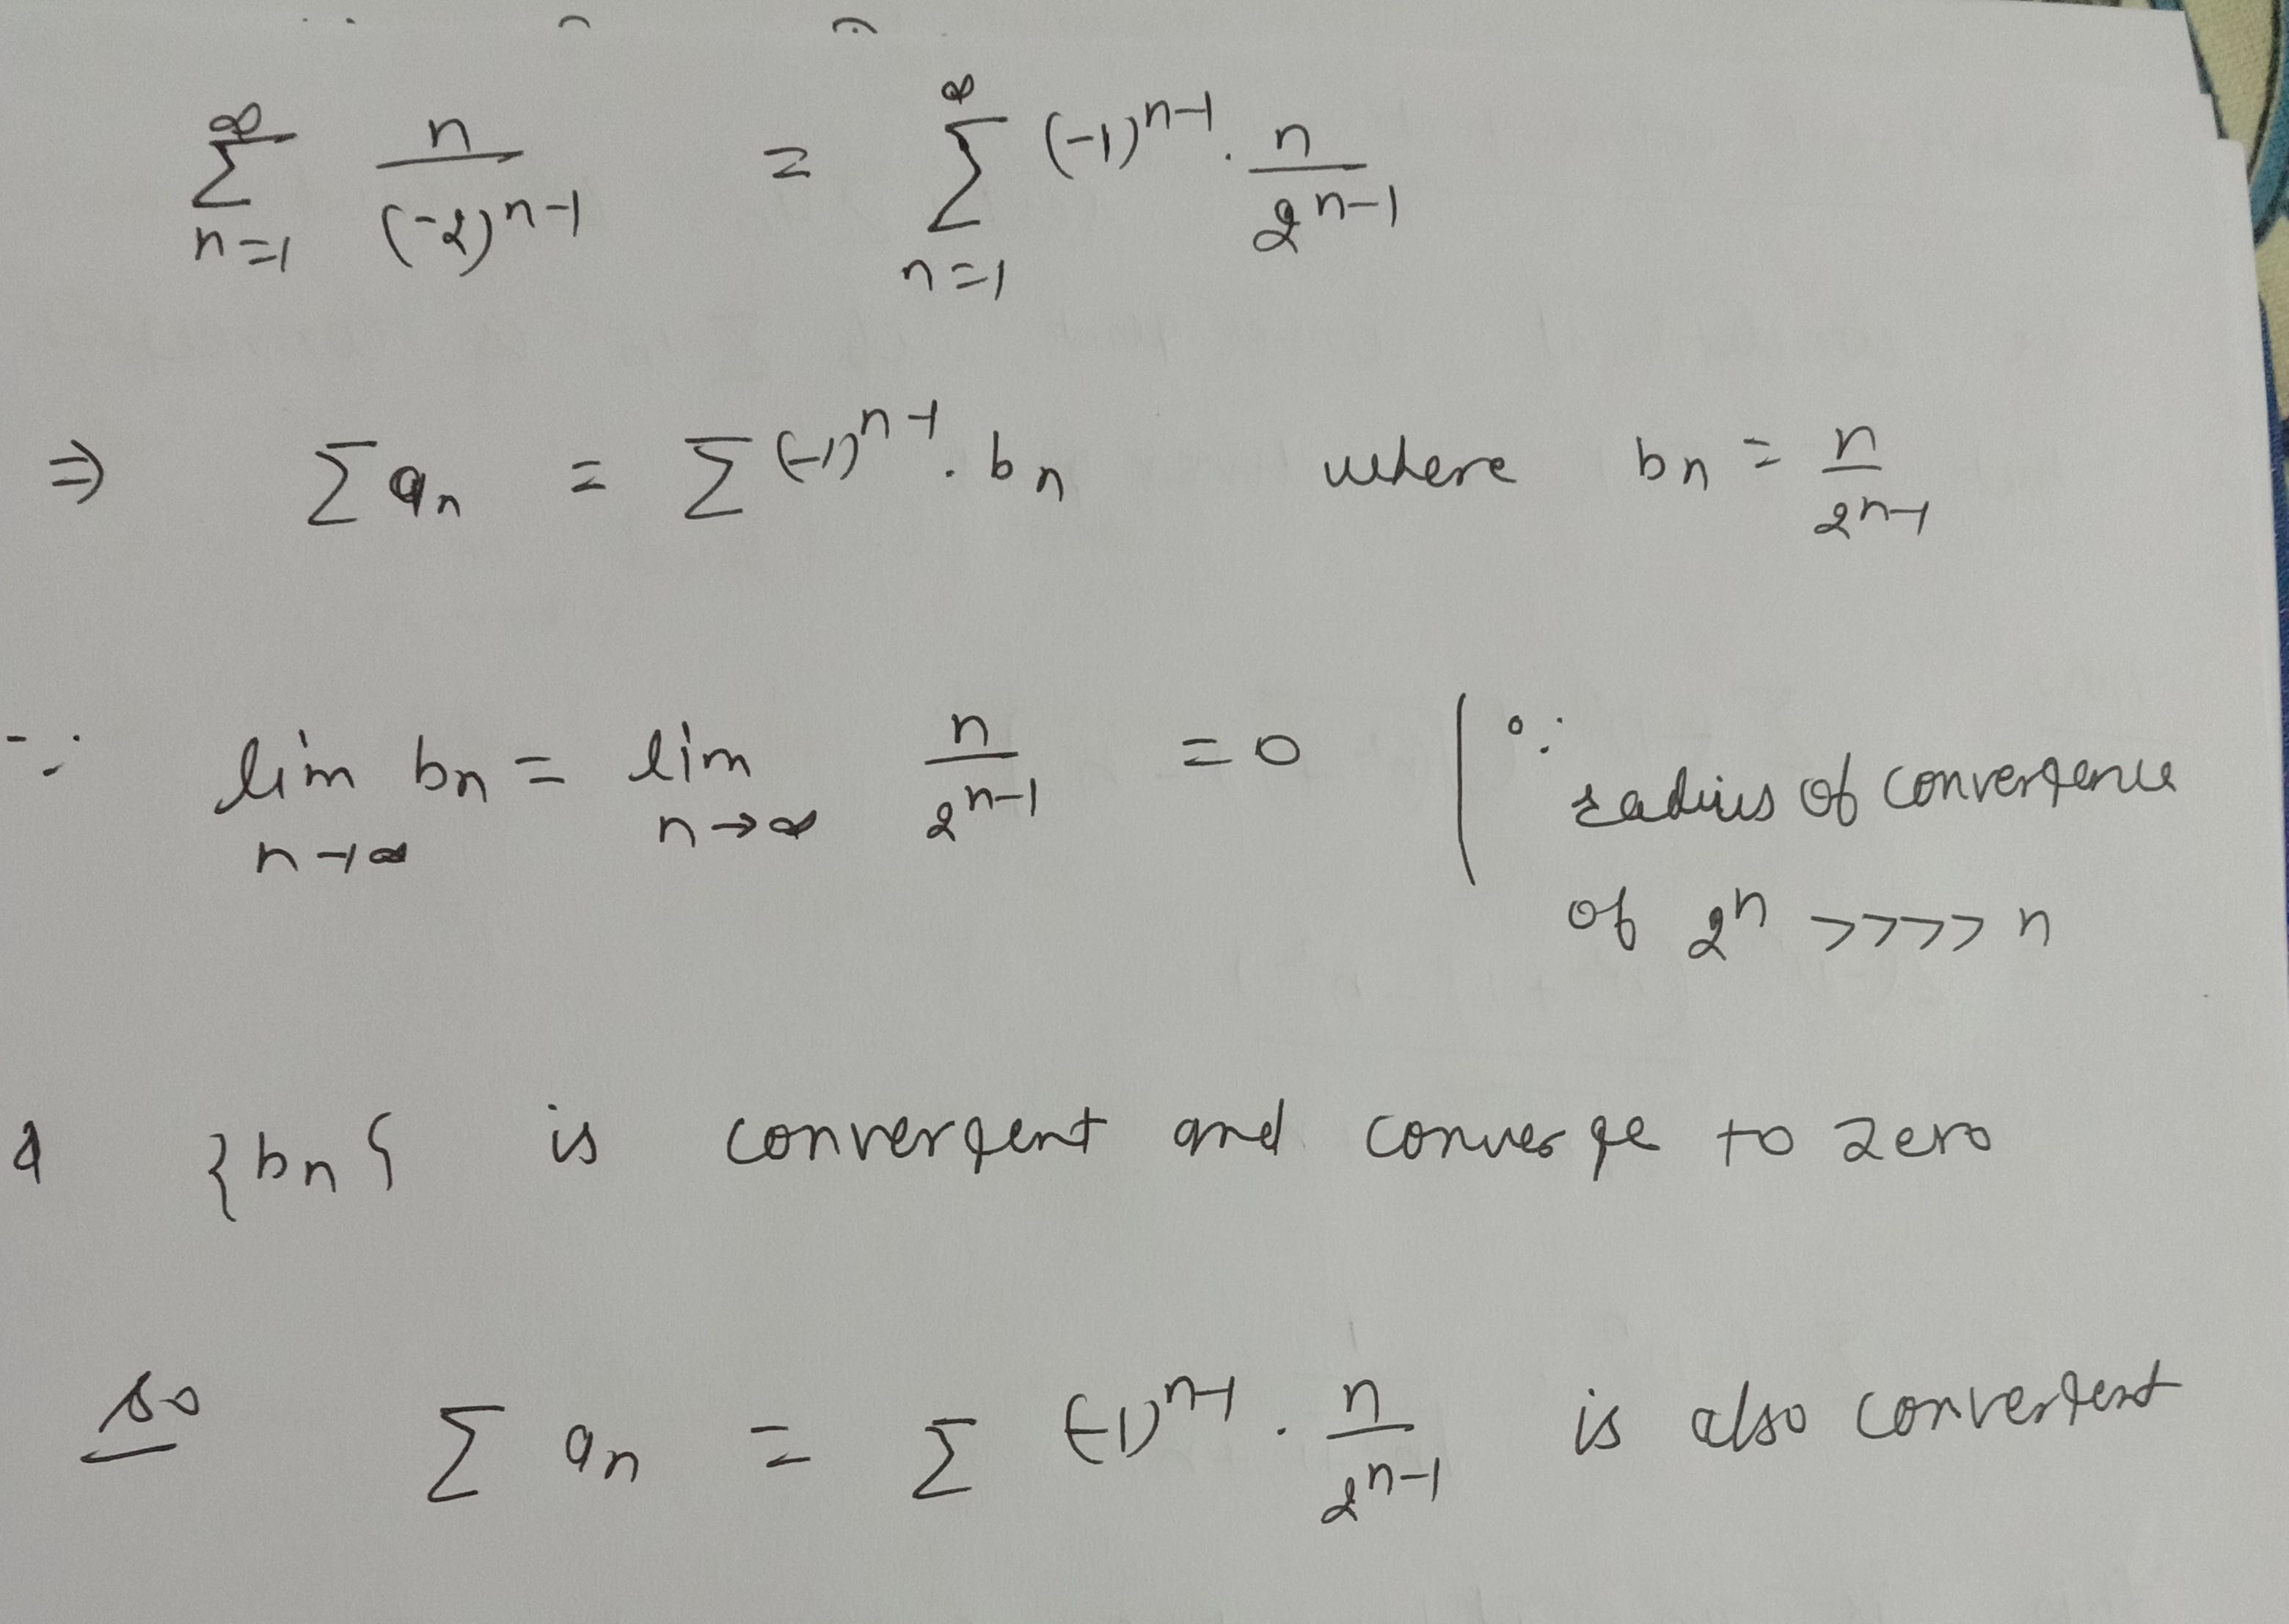 ∞∑n=1 n/(-2)^n-1 = ∞∑n=1 (-1)^n-1 . n/2^n-1
⇒ ∑ an = ∑ (-1)^n-1 . bn where bn = n/2^n-1
∵ lim n→∞ bn = lim n→∞ n/2^n-1 = 0 | ∵
radius of convergence
of 2^n >>>> n
& {bn} is convergent and converge to zero
so ∑ an = ∑ (-1)^n-1 . n/2^n-1 is also convergent